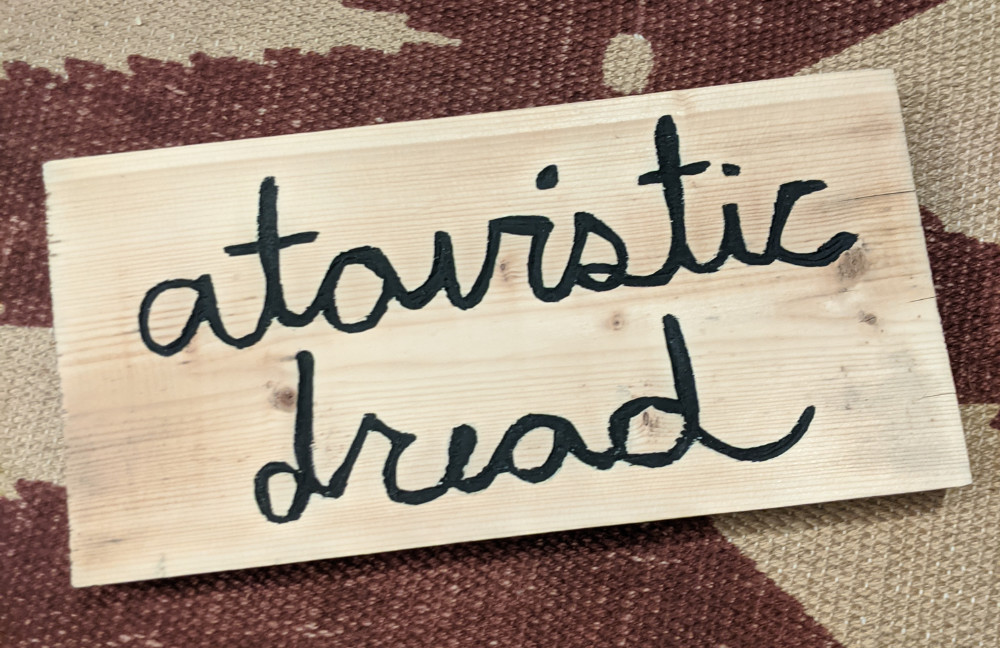 atavistic
dread